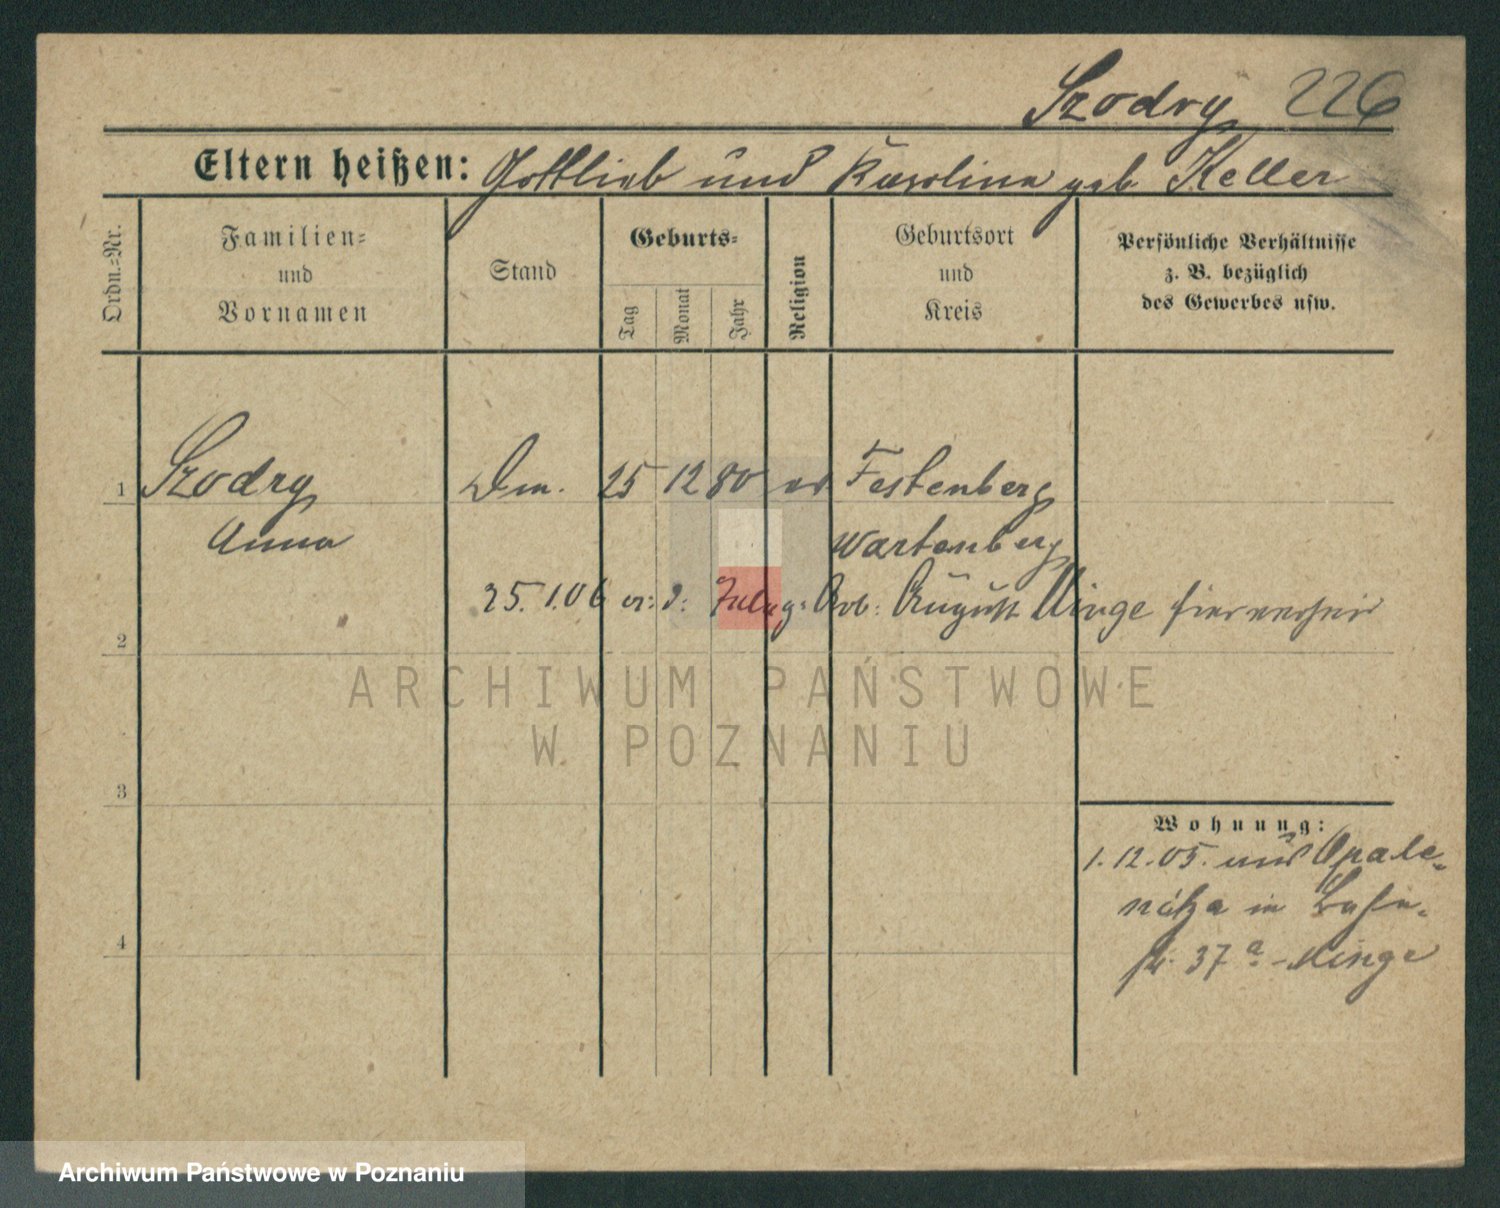 Szodry 226
Eltern heißen: Gottlieb und Karoline geb. Keller
Ordn.-Nr.
Familien-
und
Vornamen
Stand
Geburts-
Tag
Monat
Jahr
Religion
Geburtsort
und
Kreis
Persönliche Verhältnisse
z. B. bezüglich
des Gewerbes usw.
1 Szodry 25 12 80 ev. Festenberg
Anna Wartenberg
25.1.06 August Minge
2
ARCHIWUM PAŃSTWOWE
W POZNANIU
3
Wohnung:
1.12.05. aus Opale-
nitza in
37a Minge
4
Archiwum Państwowe w Poznaniu